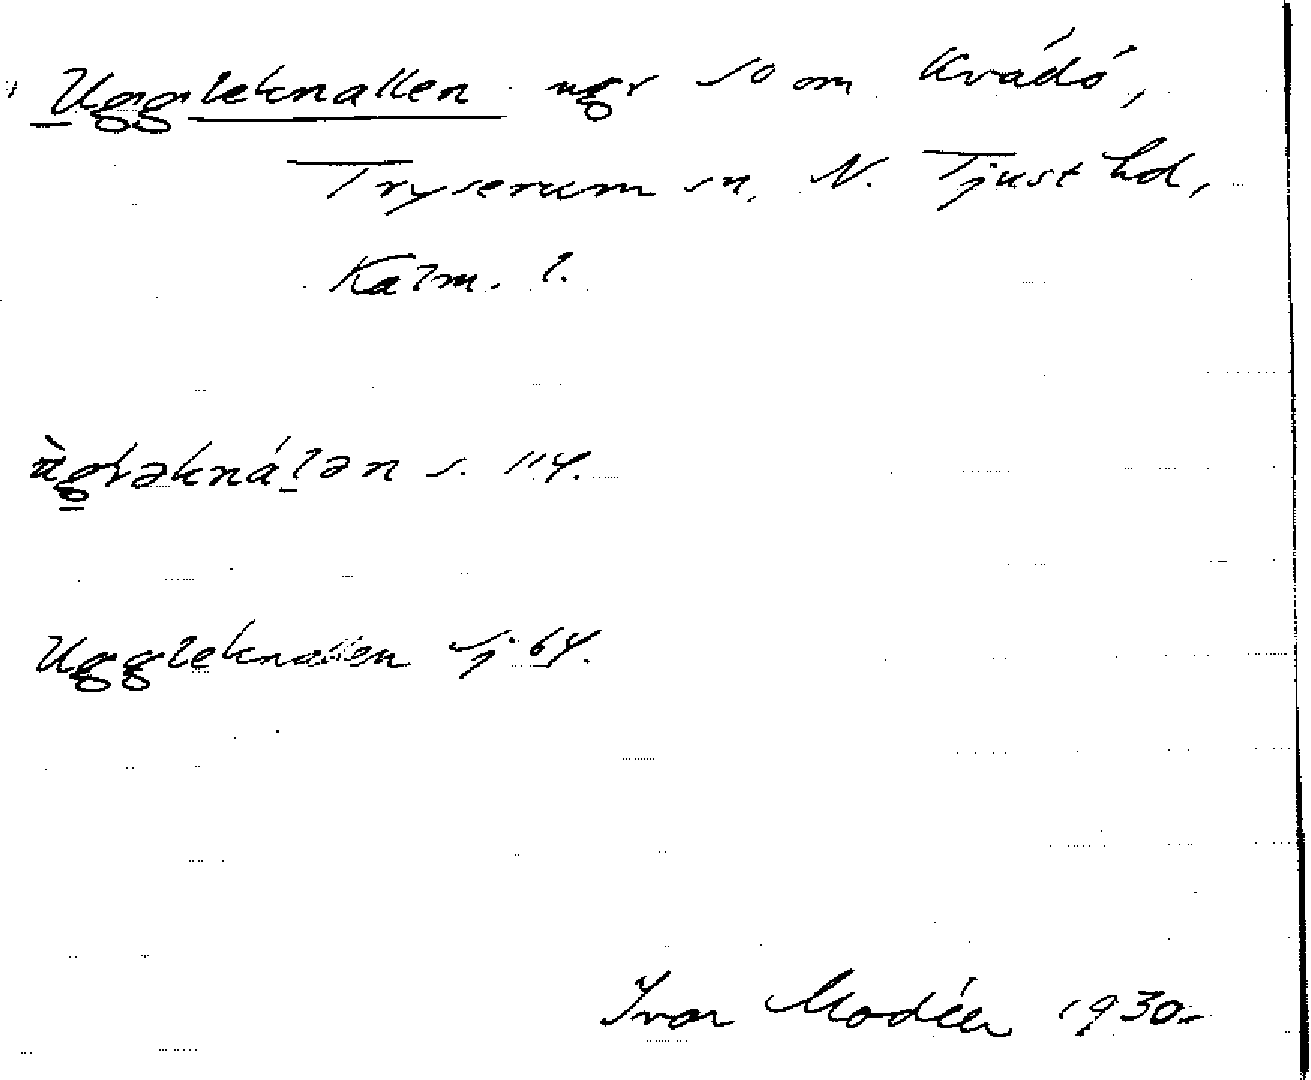 Uggleknallen ugr SO om Kvádó,
Tryserum sn, N. Tjust hd,
Kalm. l.
ùgləknálən s. 114.
Uggleknallen Sj 64.
Ivar Modéer 1930